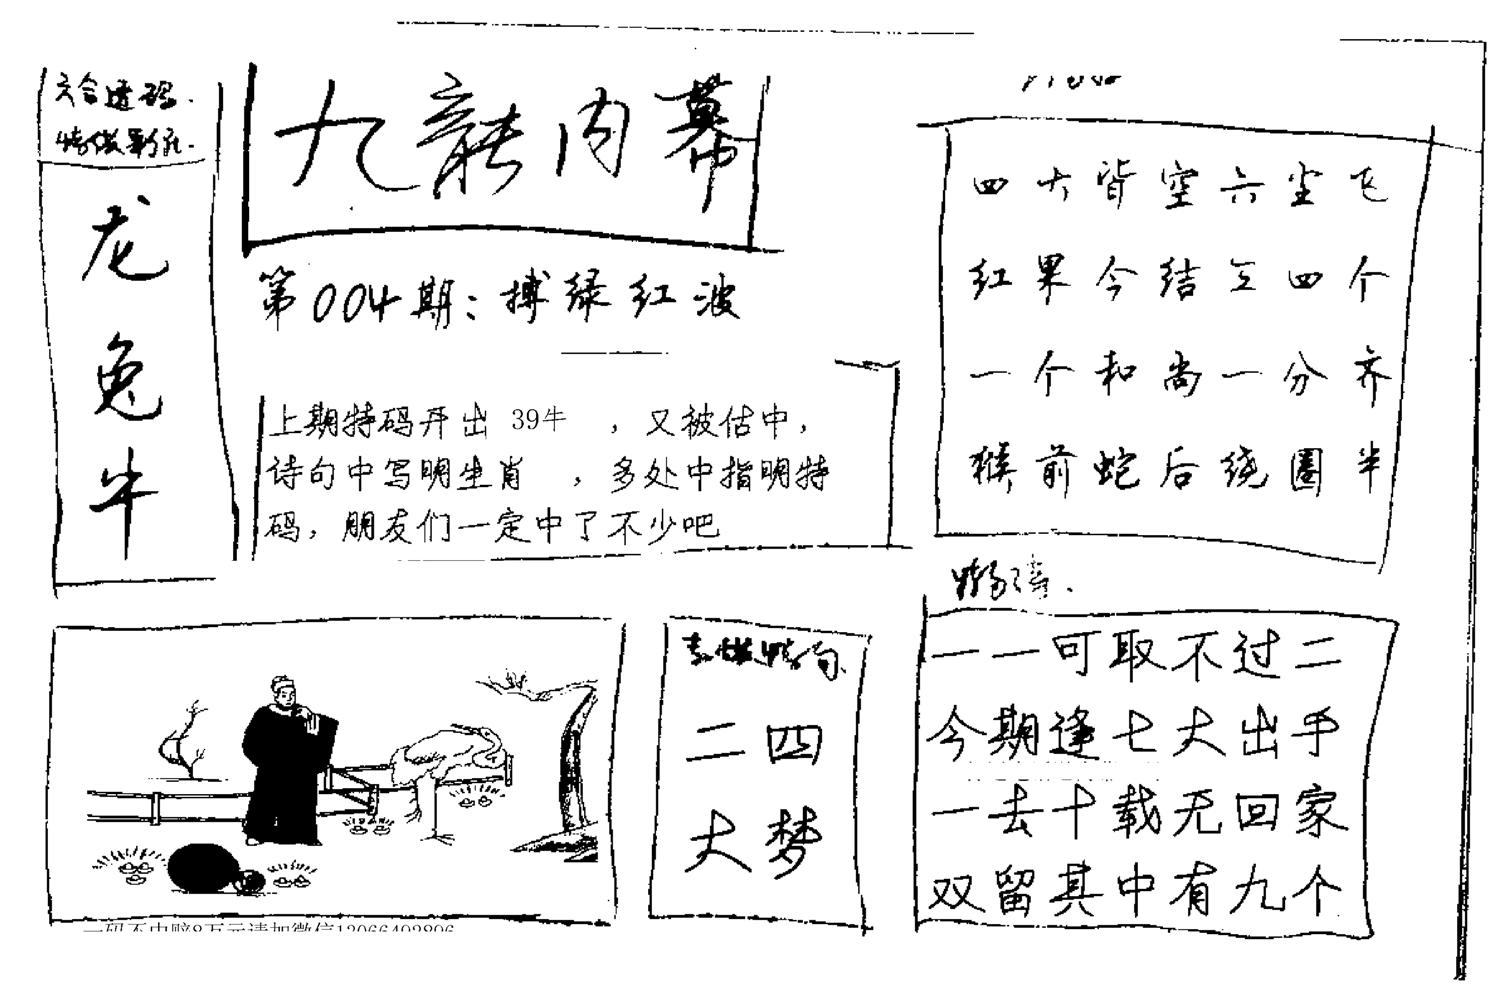 六合透码.
龙
兔
牛
九龍内幕
第004期：搏绿红波
上期特码开出 39牛 ，又被估中，
诗句中写明生肖 ，多处中指明特
码，朋友们一定中了不少吧
四大皆空六尘飞
红果今结三四个
一个和尚一分齐
猴前蛇后绕圈半
一一可取不过二
今期逢七大出手
一去十载无回家
双留其中有九个
二四
大梦